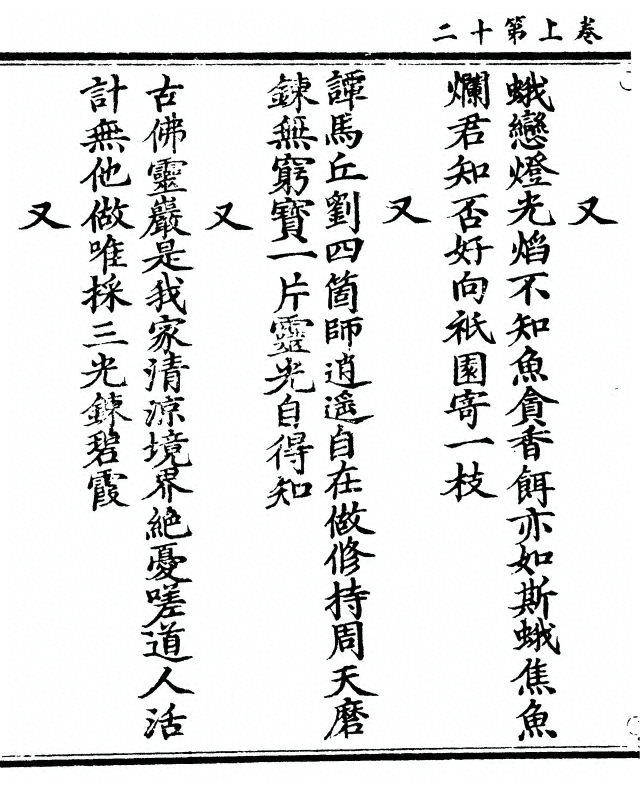 卷上第十二
又
蛾戀燈光焰不知魚貪香餌亦如斯蛾焦魚
爛君知否好向祇園寄一枝
又
譚馬丘劉四箇師逍遙自在做修持周天磨
鍊無窮寶一片靈光自得知
又
古佛靈巖是我家清涼境界絶憂嗟道人活
計無他做唯採三光鍊碧霞
又